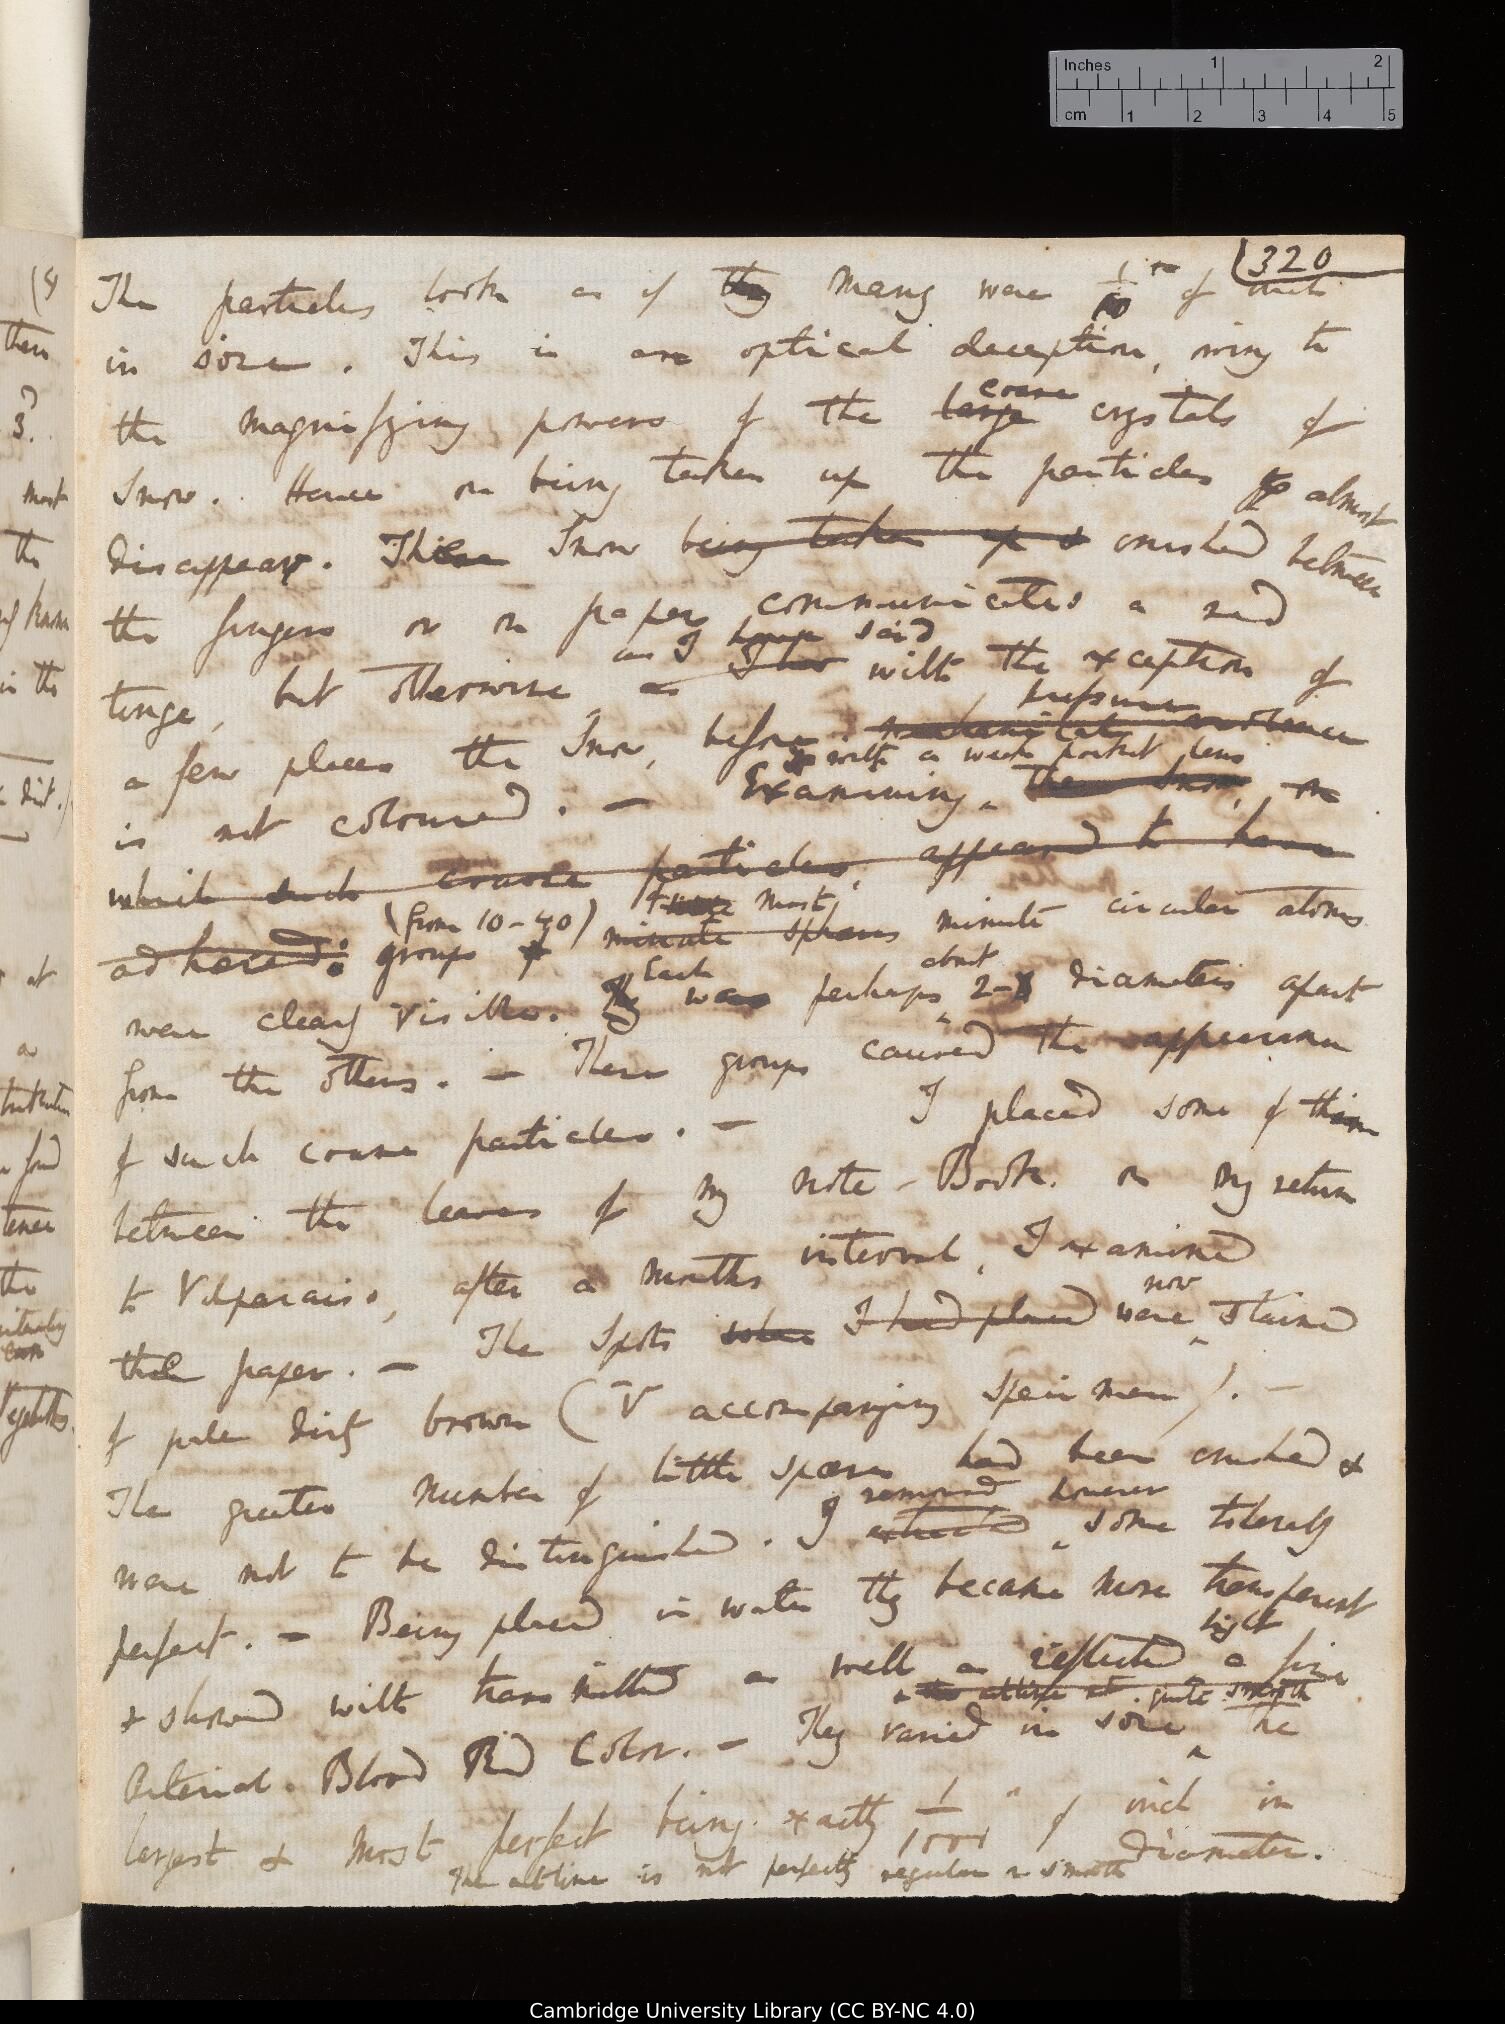 (320
The particles look as if they many were 1/10th of inch
in size. This is an optical deception, owing to
coarse
the magnifying powers of the large crystals of
Snow. Hence on being taken up the particles almost
disappear. The Snow being taken up & crushed between
the fingers or on paper communicates a red
as I have said
tinge, but otherwise as I have with the exception of
pressure
a few places the Snow, before mechanical violence
with a weak pocket lens
is not coloured. — Examining the Snow, on
which such coarse particles appeared to have
(from 10-40) most
adhered: groups of minute spheres minute circular atoms
Each about
were clearly visible. They was perhaps 2- diameters apart
from the others. — These groups caused the appearance
of such coarse particles. — I placed some of
between the leaves of my note-Book. on my return
to Valparaiso, after a months interval, I examined
now
the paper. — The spots where I had placed were stained
of pale dirty brown (V accompanying specimen). —
The greater number of little spæres had been crushed &
removed however
were not to be distinguished. I some tolerably
perfect. — Being placed in water they became more transparent
light
& showed with transmitted as well as reflected a fine
& the outline not quite smooth
Arterial. Blood Red Color. — They varied in size, the
largest & most perfect being exactly 1/1000th of inch in
diameter.
The outline is not perfectly regular or smooth
Inches 1 2
cm 1 2 3 4 5
Cambridge University Library (CC BY-NC 4.0)